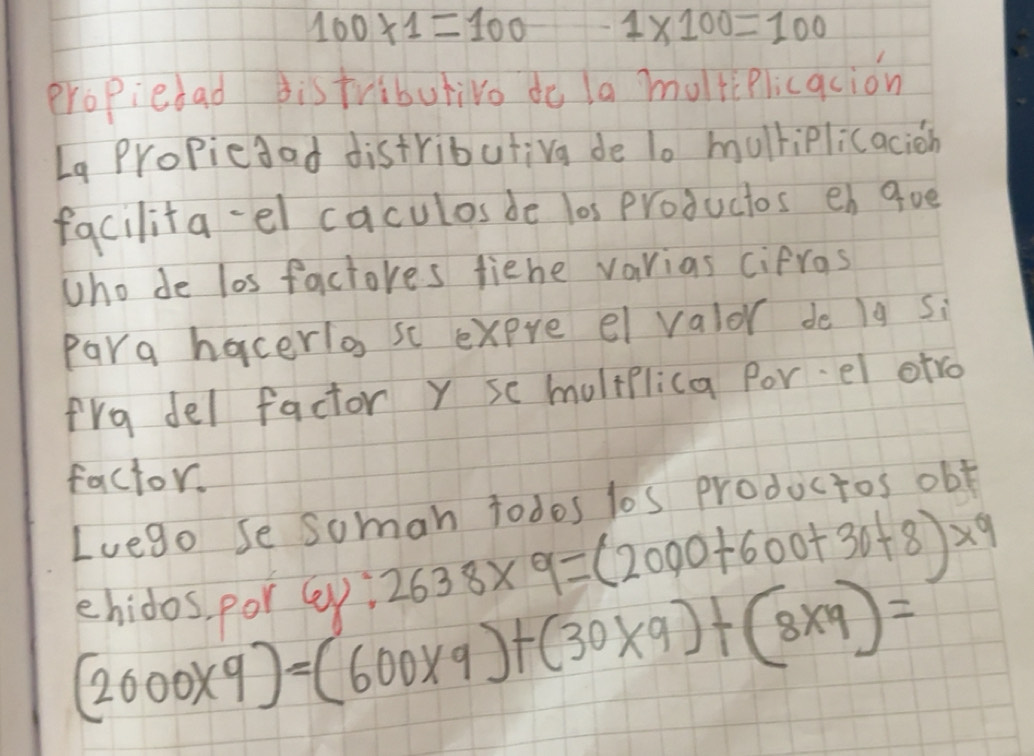 100x1=100 1x100=100
Propiedad distributivo de la multiplicación
La Propiedad distributiva de lo multiplicación
facilita el caculos de los productos en que
uno de los factores tiene varias cifras
Para hacerlo se expre el valor de la si
fra del factor y se multplica Por el otro
factor.
Luego se suman todos los productos obt
enidos. por ej: 2638x9=(2000+600+30+8)x9
(2000x9)=(600x9)+(30x9)+(8x9)=